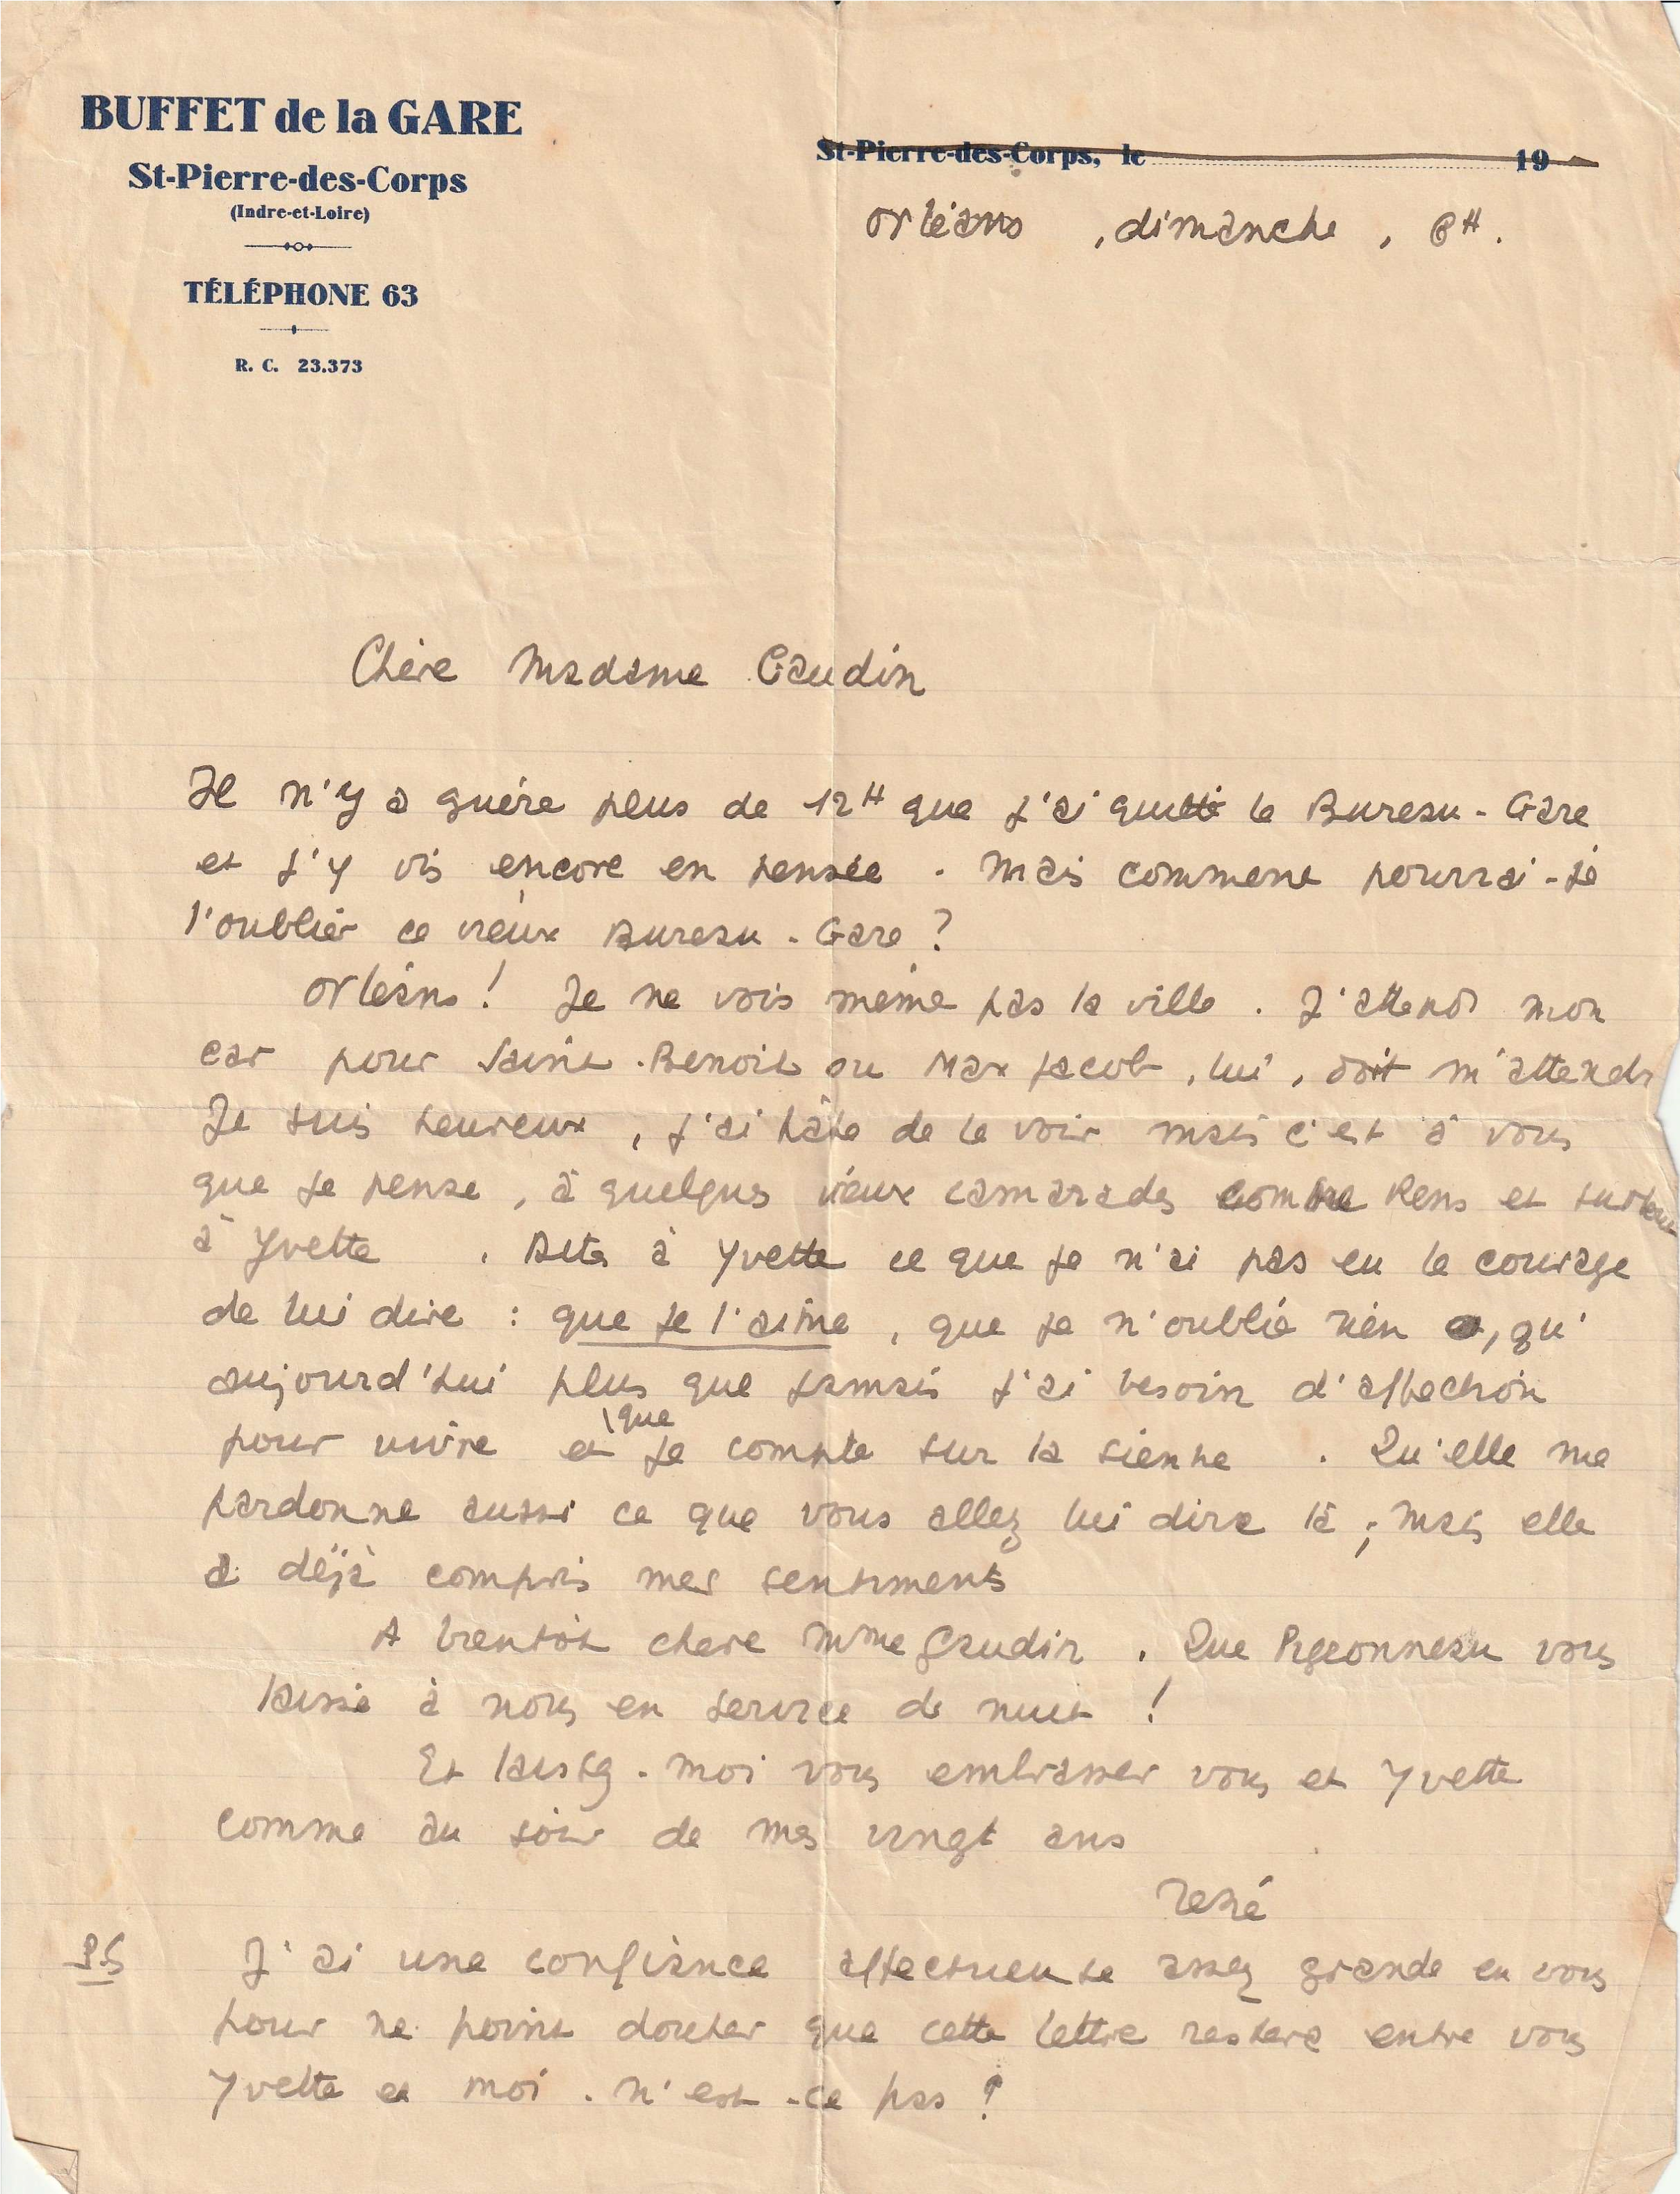 BUFFET de la GARE
St-Pierre-des-Corps
(Indre-et-Loire)
TÉLÉPHONE 63
R. C. 23.373
St-Pierre-des-Corps, le 19
Orléans, dimanche, 8H.
Chère Madame Gaudin
Il n'y a guère plus de 12H que j'ai quitté le Bureau-Gare
et j'y vis encore en pensée. Mais comment pourrai-je
l'oublier ce vieux Bureau-Gare ?
Orléans ! Je ne vois même pas la ville. J'attends mon
car pour Saint-Benoit ou Max Jacob, lui, doit m'attendre
Je suis heureux, j'ai hâte de le voir mais c'est à vous
que je pense, à quelques vieux camarades comme et surtout
à Yvette. Dites à Yvette ce que je n'ai pas eu le courage
de lui dire : que je l'aime, que je n'oublie rien, qu'
aujourd'hui plus que jamais j'ai besoin d'affection
pour vivre et que je compte sur la sienne. Qu'elle me
pardonne aussi ce que vous allez lui dire là ; mais elle
a déjà compris mes sentiments
A bientôt chère Mme Gaudin. Que Pigeonneau vous
laisse à nous en service de nuit !
Et laissez-moi vous embrasser vous et Yvette
comme au soir de mes vingt ans
René
P.S J'ai une confiance affectueuse assez grande en vous
pour ne point douter que cette lettre restera entre vous
Yvette et moi. N'est-ce pas ?